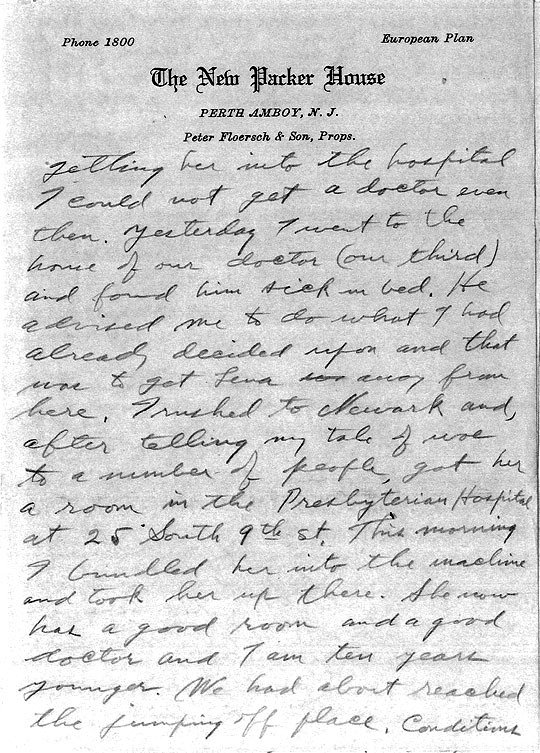 Phone 1800
European Plan
The New Packer House
PERTH AMBOY, N. J.
Peter Floersch & Son, Props.
getting her into the hospital
I could not get a doctor even
then. Yesterday I went to the
home of our doctor (our third)
and found him sick in bed. He
advised me to do what I had
already decided upon and that
was to get Lena away from
here. I rushed to Newark and,
after telling my tale of woe
to a number of people, got her
a room in the Presbyterian Hospital
at 25 South 9th st. This morning
I bundled her into the machine
and took her up there. She now
has a good room and a good
doctor and I am ten years
younger. We had about reached
the jumping off place. Conditions